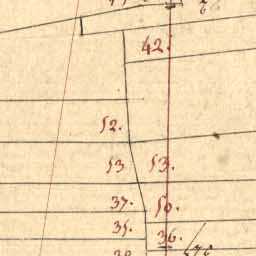 42.
52.
53 53.
37. 50.
35. 36.